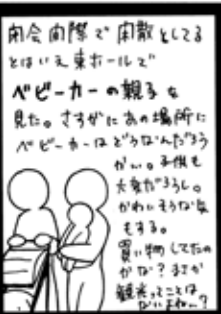 閉会間際で閑散としてる
とはいえ東ホールで
ベビーカーの親子を
見た。さすがにあの場所に
ベビーカーはどうなんだろう
かぃ。子供も
大変だろうし。
かわいそうな気
もする。
買い物してたの
かな？まさか
観光ってことは
ないよね…？